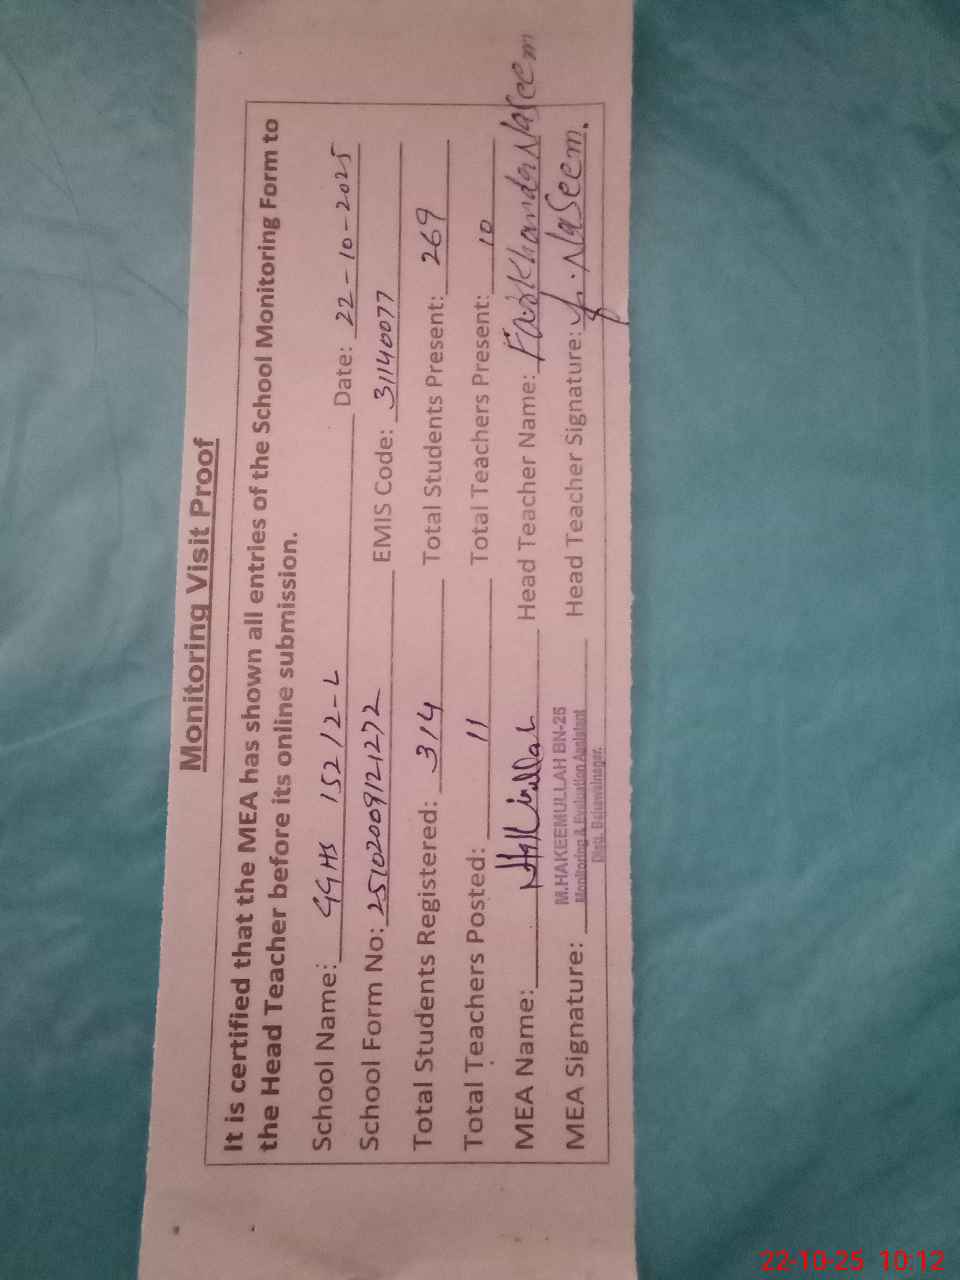 Monitoring Visit Proof
It is certified that the MEA has shown all entries of the School Monitoring Form to
the Head Teacher before its online submission.
School Name: GGHS 152/2-L Date: 22-10-2025
School Form No: 2510200912127 2 EMIS Code: 31140077
Total Students Registered: 314 Total Students Present: 269
Total Teachers Posted: 11 Total Teachers Present: 10
MEA Name: Head Teacher Name: Farkhanda Naseem
MEA Signature: Head Teacher Signature: Naseem.
M.HAKEEMULLAH BN-25
Monitoring & Evaluation Assistant
Distt. Bahawalnagar.
22-10-25 10:12